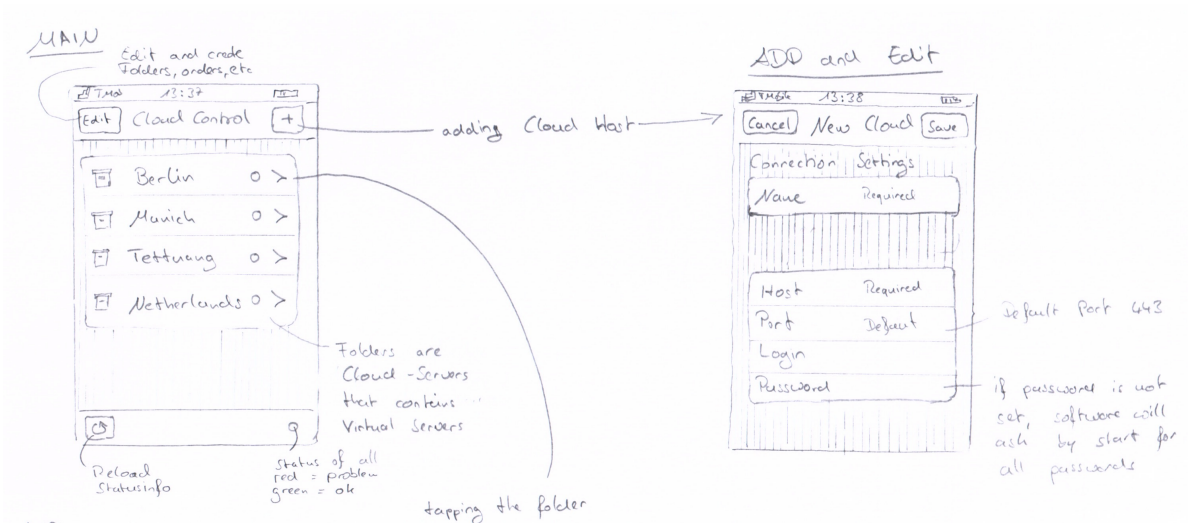 MAIN
Edit and create
Folders, orders, etc
13:37
Edit Cloud Control +
Berlin
Munich
Tettnang
Netherlands
adding Cloud Host
Folders are
Cloud-Servers
that contains
Virtual Servers
Reload
Statusinfo
Status of all
red = problem
green = ok
tapping the folder
ADD and Edit
TMobile 13:38
Cancel New Cloud Save
Connection Settings
Name Required
Host Required
Port Default
Login
Password
Default Port 443
if password is not
set, software will
ask by start for
all passwords